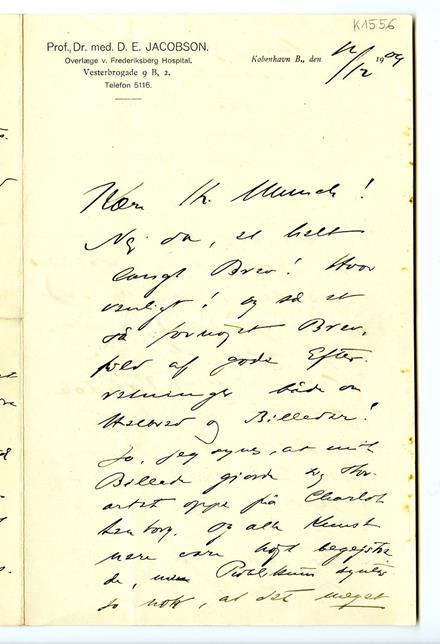 K1556
Prof., Dr. med. D. E. JACOBSON.
Overlæge v. Frederiksberg Hospital.
Vesterbrogade 9 B, 2.
Telefon 5116.
København B., den 12/12 1909
Kære Hr. Munch!
Nej da, et helt
langt Brev! Hvor
venligt! og så et
så fornøjet Brev,
fuld af gode Efter-
retninger både om
Helbred og Billeder!
Jo, jeg synes, at mit
Billede gjorde sig stor-
artet oppe på Charlot-
tenborg. Og alle Kunst
nere vare højt begejstre
de, men Publikum syntes
jo nok, at det meget